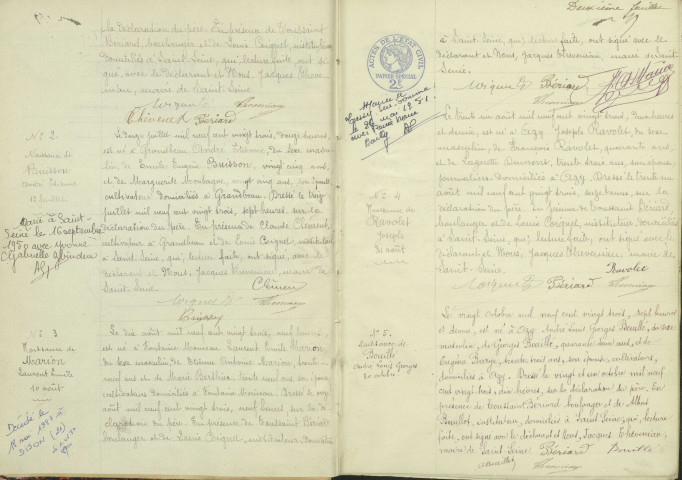 la déclaration du père. En présence de Toussaint
Bériard, boulanger et de Louis Coignet, instituteur
domiciliés à Saint-Seine, qui, lecture faite, ont signé
avec le déclarant et Nous, Jacques Theve-
nin, maire de Saint-Seine
Bériard
N° 2
Naissance de
Buisson
André Etienne
12 juillet
Marié à Saint-
Seine le 16 septembre
1950 avec Yvonne
Le douze juillet mil neuf cent vingt trois, douze heures,
est né à Grandbeau André Etienne, du sexe mascu-
lin, de Emile Eugène Buisson, vingt cinq ans,
et de Marguerite Montagne, vingt ans, son épouse,
cultivateurs domiciliés à Grandbeau. Dressé le treize
juillet mil neuf cent vingt trois, sept heures, sur la
déclaration du père. En présence de Claude Clément,
cultivateur à Grandbeau et de Louis Coignet, instituteur
à Saint-Seine, qui, lecture faite, ont signé, avec le
déclarant et Nous, Jacques Thevenin, maire de
Saint-Seine
N° 3
Naissance de
Marion
Laurent Emile
10 août
Décédé le
DIJON (21)
Le dix août mil neuf cent vingt trois, neuf heures,
est né à Fontaine Morineau Laurent Emile Marion,
du sexe masculin, de Etienne Antoine Marion, trente
neuf ans et de Marie Berthier, trente neuf ans, son épouse,
cultivateurs domiciliés à Fontaine Morineau. Dressé le onze
août mil neuf cent vingt trois, neuf heures sur la
déclaration du père. En présence de Toussaint Bériard
boulanger et de Louis Coignet, instituteur, domiciliés
Deuxième feuillet
ACTES DE L'ETAT CIVIL
PAPIER SPECIAL
2F
à Saint-Seine, qui, lecture faite, ont signé avec le
déclarant et Nous, Jacques Thevenin, maire de Saint-
Seine.
Bériard
N° 4
Naissance de
Ravolet
Joseph
31 août
Le trente un août mil neuf cent vingt trois, deux heures
et demie, est né à Azy Joseph Ravolet, du sexe
masculin, de François Ravolet, quarante ans,
et de Lazarette Dumont, trente trois ans, son épouse,
journaliers domiciliés à Azy. Dressé le trente un
août mil neuf cent vingt trois, seize heures, sur la
déclaration du père. En présence de Toussaint Bériard,
boulanger et de Louis Coignet, instituteur domiciliés
à Saint-Seine, qui, lecture faite, ont signé avec le
déclarant et Nous, Jacques Thevenin, maire de
Saint-Seine.
Ravolet
Bériard
N° 5
Naissance de
Bouille
André Louis Georges
20 octobre
Le vingt octobre mil neuf cent vingt trois, sept heures
et demie, est né à Azy André Louis Georges Bouille, du sexe
masculin, de Georges Bouille, quarante deux ans, et de
Eugénie Barge, trente trois ans, son épouse, cultivateurs,
domiciliés à Azy. Dressé le vingt et un octobre mil neuf
cent vingt trois, dix heures, sur la déclaration du père. En
présence de Toussaint Bériard boulanger et de Albert
instituteur, domiciliés à Saint-Seine, qui, lecture
faite, ont signé avec le déclarant et Nous, Jacques Thevenin,
maire de Saint-Seine
Bériard
Bouille